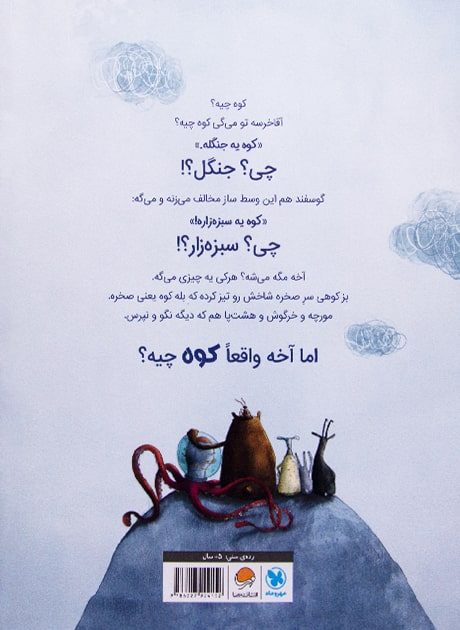 کوه چیه؟
آقاخرسه تو می‌گی کوه چیه؟
«کوه یه جنگله.»
چی؟ جنگل؟!
گوسفند هم این وسط ساز مخالف می‌زنه و می‌گه:
«کوه یه سبزه‌زاره!»
چی؟ سبزه‌زار؟!
آخه مگه می‌شه؟ هرکی یه چیزی می‌گه.
بز کوهی سرِ صخره شاخش رو تیز کرده که بله کوه یعنی صخره.
مورچه و خرگوش و هشت‌پا هم که دیگه نگو و نپرس.
اما آخه واقعاً کوه چیه؟
رده‌ی سنی: ۵+ سال
مهروماه